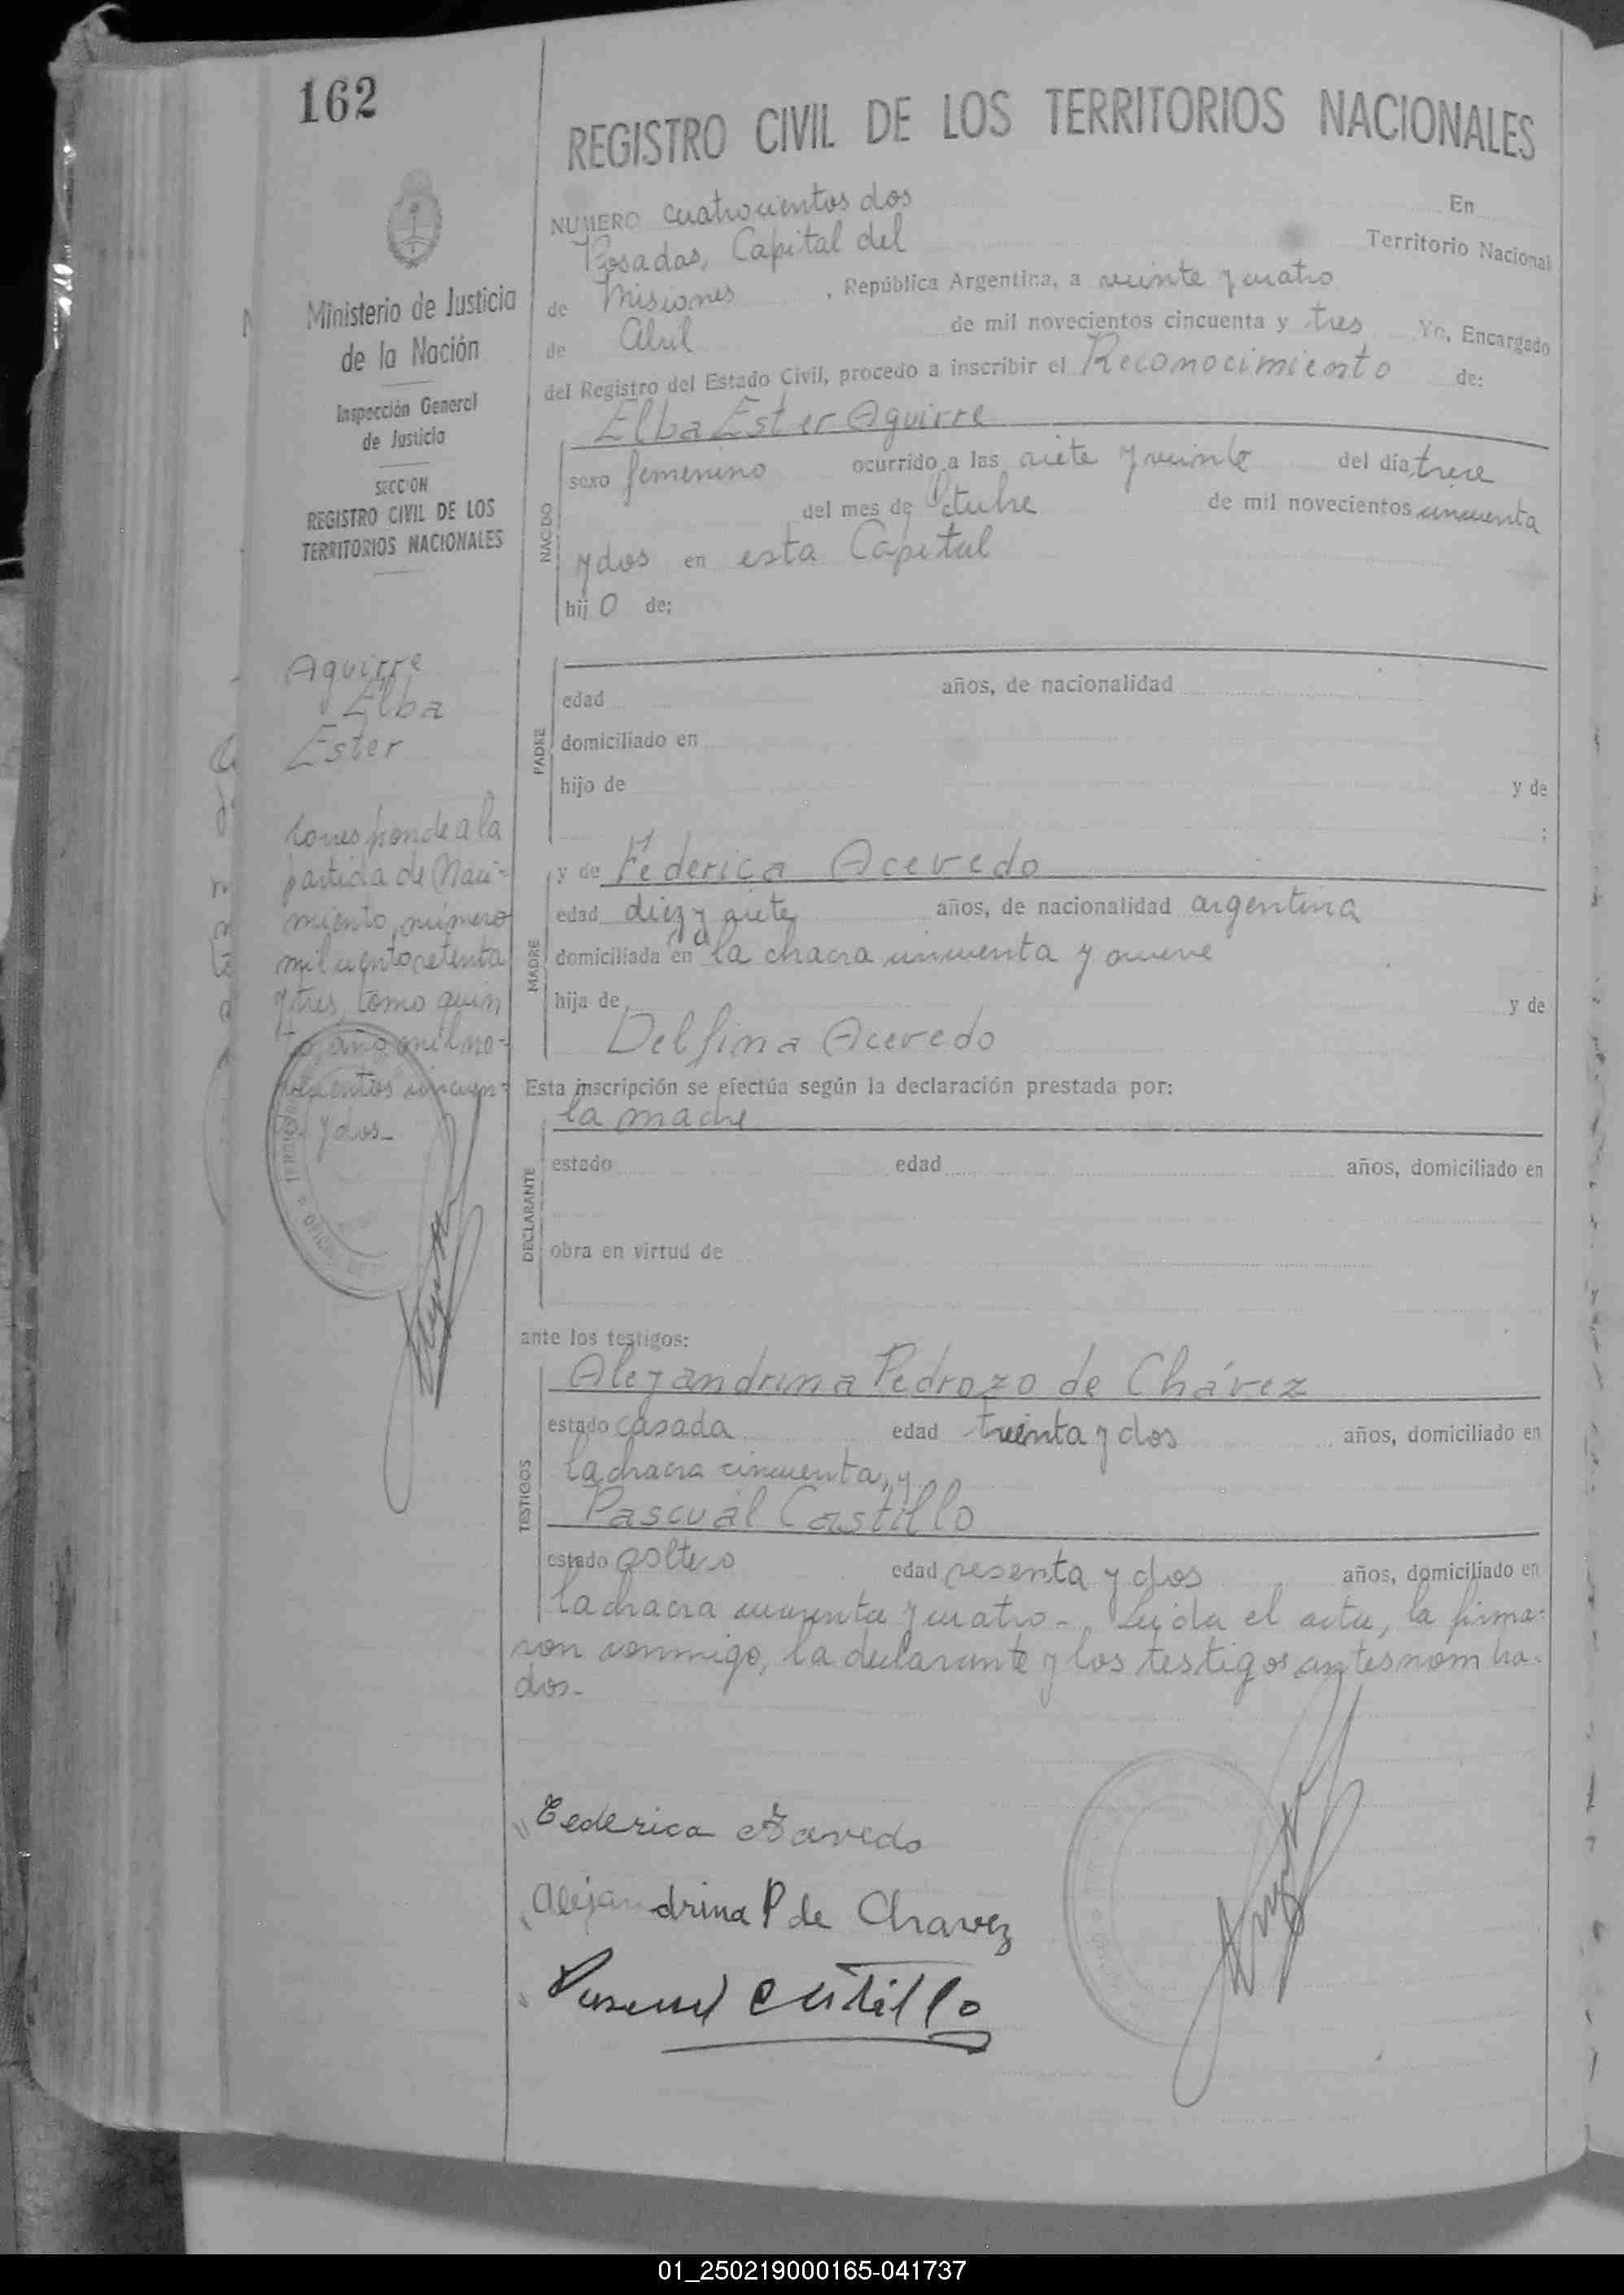 162
REGISTRO CIVIL DE LOS TERRITORIOS NACIONALES
Ministerio de Justicia
de la Nación
Inspección General
de Justicia
SECCION
REGISTRO CIVIL DE LOS
TERRITORIOS NACIONALES
Aguirre
Elba
Ester
Corresponde a la
partida de Naci-
miento, número
mil ciento setenta
y tres, tomo quin
to, año mil no-
vecientos cincuen-
ta y dos.-
NUMERO cuatrocientos dos En
Posadas, Capital del Territorio Nacional
de Misiones, República Argentina, a veinte y cuatro
de Abril de mil novecientos cincuenta y tres Yo, Encargado
del Registro del Estado Civil, procedo a inscribir el Reconocimiento de:
Elba Ester Aguirre
NACIDO
sexo femenino ocurrido a las siete y veinte del día trece
del mes de Octubre de mil novecientos cincuenta
y dos en esta Capital
hij o de:
PADRE
edad años, de nacionalidad
domiciliado en
hijo de y de
;
y de Federica Acevedo
MADRE
edad diez y siete años, de nacionalidad argentina
domiciliada en la chacra cincuenta y nueve
hija de y de
Delfina Acevedo
Esta inscripción se efectúa según la declaración prestada por:
la madre
DECLARANTE
estado edad años, domiciliado en
obra en virtud de
ante los testigos:
Alejandrina Pedrozo de Chávez
TESTIGOS
estado casada edad treinta y dos años, domiciliado en
la chacra cincuenta, y
Pascual Castillo
estado soltero edad sesenta y dos años, domiciliado en
la chacra cuarenta y cuatro.- Leída el acta, la firma-
ron conmigo, la declarante y los testigos antes nombra-
dos.-
Federica Acevedo
Alejandrina P de Chavez
Pascual Castillo
01_250219000165-041737